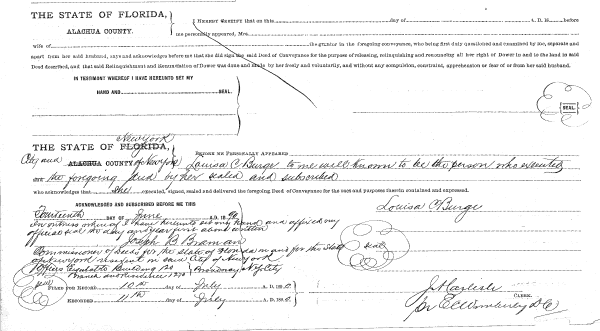 THE STATE OF FLORIDA,
ALACHUA COUNTY.
I HEREBY CERTIFY that on this day of A. D. 18 before
me personally appeared, Mrs.
wife of the grantor in the foregoing conveyance, who being first duly questioned and examined by me, separate and
apart from her said husband, says and acknowledges before me that she did sign the said Deed of Conveyance for the purpose of releasing, relinquishing and renouncing all her right of Dower in and to the land in said
Deed described, and that said Relinquishment and Renunciation of Dower was done and made by her freely and voluntarily, and without any compulsion, constraint, apprehension or fear of or from her said husband.
IN TESTIMONY WHEREOF I HAVE HEREUNTO SET MY
HAND AND SEAL.
SEAL.
New York
THE STATE OF FLORIDA,
City and ALACHUA COUNTY of New York
BEFORE ME PERSONALLY APPEARED
Louisa C Burge to me well known to be the person who executed
the foregoing and by her sealed and subscribed
who acknowledges that she executed, signed, sealed and delivered the foregoing Deed of Conveyance for the uses and purposes therein contained and expressed.
ACKNOWLEDGED AND SUBSCRIBED BEFORE ME THIS
Louisa C Burge
Fourteenth DAY OF June A. D. 18
In witness whereof I have hereunto set my hand and affixed my
official seal the day and year first above written
Joseph B Braman
Commissioner of Deeds for the State of Florida in and for the State
of New York resident in said City of New York
Office Equitable Building 120
Broadway N.Y. City
seal
seal
FILED FOR RECORD 10th day of July A. D. 18
RECORDED 11th day of July A. D. 18
J A Carlisle
CLERK.
pr E C Wimberly D C